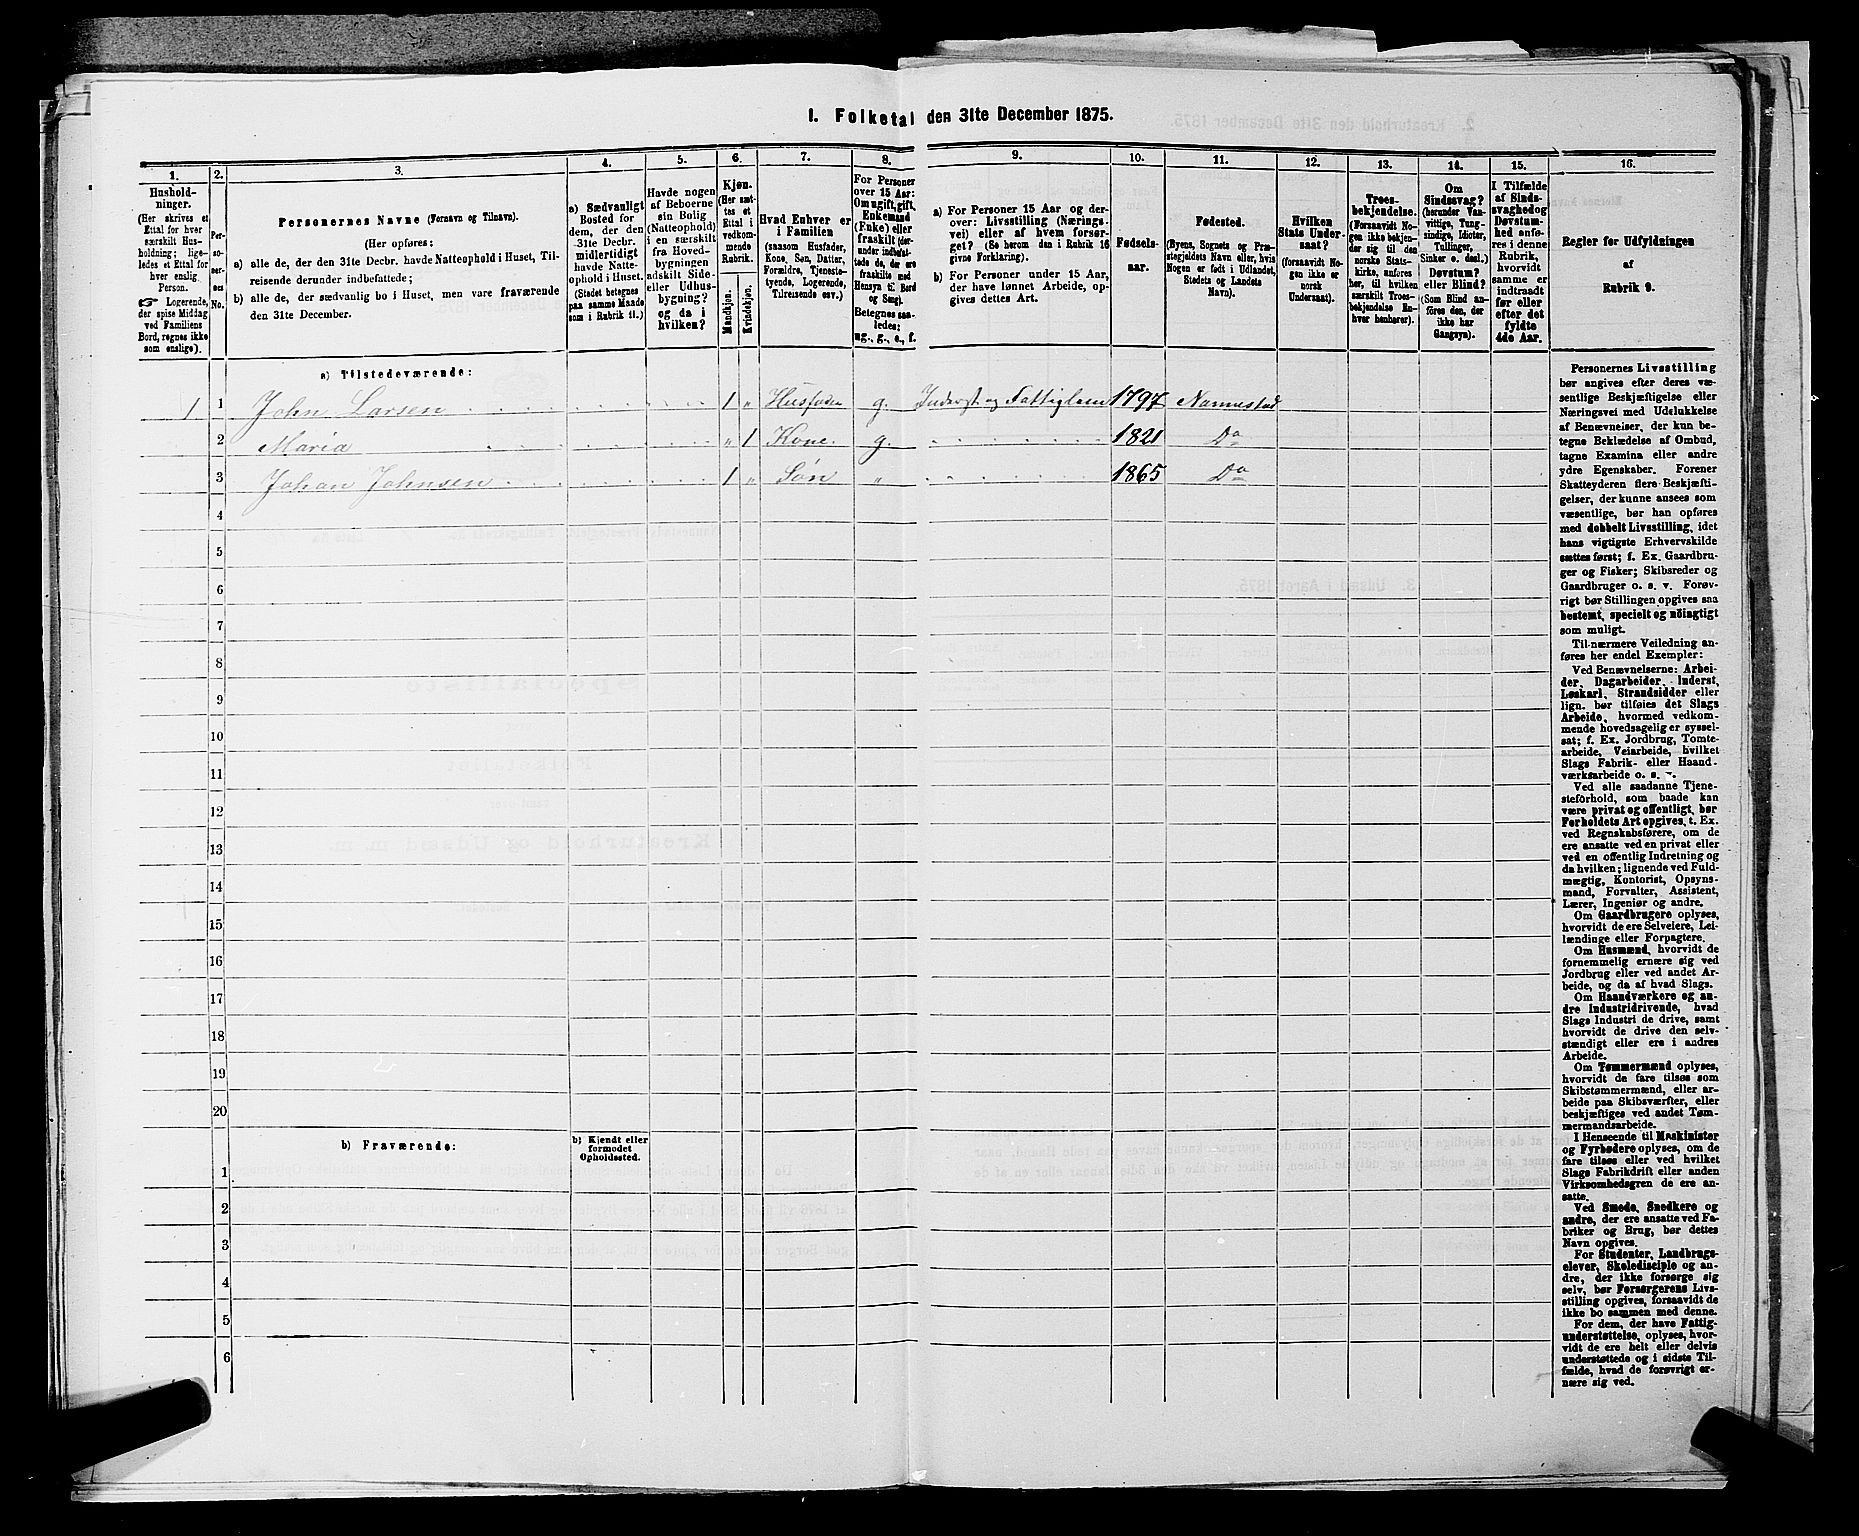 I. Folketal den 31te December 1875.
1.
Hushold-
ninger.
(Her skrives et
Ettal for hver
særskilt Hus-
holdning; lige-
ledes et Ettal for
hver enslig
Person.
Logerende,
der spise Middag
ved Familiens
Bord, regnes ikke
som enslige).
2.
Per-
so-
ner-
nes
No.
3.
Personernes Navne (Fornavn og Tilnavn).
(Her opføres:
a) alle de, der den 31te Decbr. havde Natteophold i Huset, Til-
reisende derunder indbefattede;
b) alle de, der sædvanlig bo i Huset, men vare fraværende
den 31te December.
4.
a) Sædvanligt
Bosted for
dem, der den
31te Decbr.
midlertidigt
havde Natte-
ophold i Huset.
(Stedet betegnes
paa samme Maade
som i Rubrik 11.)
5.
Havde nogen
af Beboerne
sin Bolig
(Natteophold)
i en særskilt
fra Hoved-
bygningen
adskilt Side-
eller Udhus-
bygning?
og da i
hvilken?
6.
Kjøn.
(Her sæt-
tes et
Ettal i
vedkom-
mende
Rubrik.
Mandkjøn.
Kvindekjøn.
7.
Hvad Enhver er
i Familien
(saasom Husfader,
Kone, Søn, Datter,
Forældre, Tjeneste-
tyende, Logerende,
Tilreisende osv.)
8.
For Personer
over 15 Aar:
Om ugift, gift,
Enkemand
(Enke) eller
fraskilt (der-
under indbefat-
tede de, der ere
fraskilte med
Hensyn til Bord
og Seng).
Betegnes saa-
ledes:
ug., g., e., f.
9.
a) For Personer 15 Aar og der-
over: Livsstilling (Nærings-
vei) eller af hvem forsør-
get? (Se herom den i Rubrik 16
givne Forklaring).
b) For Personer under 15 Aar,
der have lønnet Arbeide, op-
gives dettes Art.
10.
Fødsels-
aar.
11.
Fødested.
(Byens, Sognets og Præ-
stegjeldets Navn eller, hvis
Nogen er født i Udlandet,
Stedets og Landets
Navn).
12.
Hvilken
Stats Under-
saat?
(forsaavidt No-
gen ikke er
norsk
Undersaat).
13.
Troes-
bekjendelse.
(Forsaavidt No-
gen ikke bekjen-
der sig til den
norske Stats-
kirke, anføres
her, til hvilken
særskilt Troes-
bekjendelse En-
hver henhører).
14.
Om
Sindssvag?
(herunder Van-
vittige, Tung-
sindige, Idioter,
Tullinger,
Sinker o. desl.)
Døvstum?
eller Blind?
(Som Blind an-
føres den, der
ikke har
Gangsyn).
15.
I Tilfælde
af Sinds-
svaghed og
Døvstum-
hed anfø-
res i denne
Rubrik,
hvorvidt
samme er
indtraadt
før eller
efter det
fyldte
4de Aar.
16.
Regler for Udfyldningen
af
Rubrik 9.
a) Tilstedeværende:
1 1 John Larsen 1 „ Husfader g. Inderst og Fattiglem 1797 Nannestad
2 Maria „ 1 Kone g. 1821 Do
3 Johan Johnsen 1 „ Søn „ 1865 Do
4
5
6
7
8
9
10
11
12
13
14
15
16
17
18
19
20
b) Fraværende:
b) Kjendt eller
formodet
Opholdssted.
1
2
3
4
5
6
Personernes Livsstilling
bør angives efter deres væ-
sentlige Beskjæftigelse eller
Næringsvei med Udelukkelse
af Benævnelser, der kun be-
tegne Beklædelse af Ombud,
tagne Examina eller andre
ydre Egenskaber. Forener
Skatteyderen flere Beskjæfti-
gelser, der kunne ansees som
væsentlige, bør han opføres
med dobbelt Livsstilling, idet
hans vigtigste Erhvervskilde
sættes først; f. Ex. Gaardbru-
ger og Fisker; Skibsreder og
Gaardbruger o. s. v. Forøv-
rigt bør Stillingen opgives saa
bestemt, specielt og nöiagtigt
som muligt.
Til nærmere Veiledning an-
føres her endel Exempler:
Ved Benævnelserne: Arbei-
der, Dagarbeider, Inderst,
Løskarl, Strandsidder eller
lign. bør tilføies det Slags
Arbeide, hvormed vedkom-
mende hovedsagelig er syssel-
sat; f. Ex. Jordbrug, Tomte-
arbeide, Veiarbeide, hvilket
Slags Fabrik- eller Haand-
værksarbeide o. s. v.
Ved alle saadanne Tjene-
steforhold, som baade kan
være privat og offentligt, bør
Forholdets Art opgives, t. Ex.
ved Regnskabsførere, om de
ere ansatte ved en privat eller
ved en offentlig Indretning og
da hvilken; lignende ved Fuld-
mægtig, Kontorist, Opsyns-
mand, Forvalter, Assistent,
Lærer, Ingeniør og andre.
Om Gaardbrugere oplyses,
hvorvidt de ere Selveiere, Lei-
lændinge eller Forpagtere.
Om Husmænd, hvorvidt de
fornemmelig ernære sig ved
Jordbrug eller ved andet Ar-
beide, og da af hvad Slags.
Om Haandværkere og an-
dre Industridrivende, hvad
Slags Industri de drive, samt
hvorvidt de drive den selv-
stændigt eller ere i andres
Arbeide.
Om Tømmermænd oplyses,
hvorvidt de fare tilsøs som
Skibstømmermænd, eller ar-
beide paa Skibsværfter, eller
beskjæftiges ved andet Tøm-
mermandsarbeide.
I Henseende til Maskinister
og Fyrbødere oplyses, om de
fare tilsøs eller ved hvilket
Slags Fabrikdrift eller anden
Virksomhedsgren de ere an-
satte.
Ved Smede, Snedkere og
andre, der ere ansatte ved Fa-
briker og Brug, bør dettes
Navn opgives.
For Studenter, Landbrugs-
elever, Skoledisciple og an-
dre, der ikke forsørge sig
selv, bør Forsørgerens Livs-
stilling opgives, forsaavidt de
ikke bo sammen med denne.
For dem, der have Fattig-
understøttelse, oplyses, hvor-
vidt de ere helt eller delvis
understøttede og i sidste Til-
fælde, hvad de forøvrigt er-
nære sig ved.